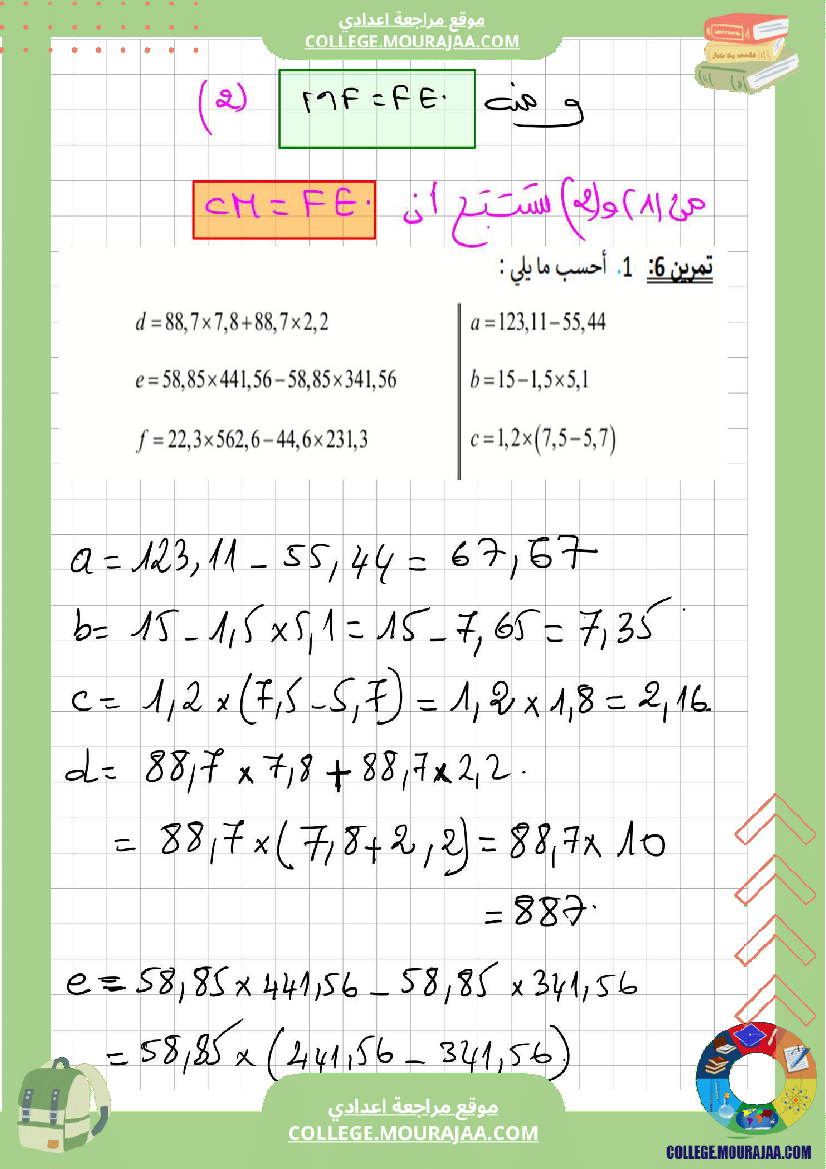 موقع مراجعة اعدادي
COLLEGE.MOURAJAA.COM
و منه MF = FE. (2)
من (1) و (2) نستنتج أن CM = FE.
تمرين 6: 1. أحسب ما يلي :
a = 123,11 − 55,44
d = 88,7 × 7,8 + 88,7 × 2,2
b = 15 − 1,5 × 5,1
e = 58,85 × 441,56 − 58,85 × 341,56
c = 1,2 × (7,5 − 5,7)
f = 22,3 × 562,6 − 44,6 × 231,3
a = 123,11 - 55,44 = 67,67
b = 15 - 1,5 × 5,1 = 15 - 7,65 = 7,35
c = 1,2 × (7,5 - 5,7) = 1,2 × 1,8 = 2,16
d = 88,7 × 7,8 + 88,7 × 2,2.
= 88,7 × (7,8 + 2,2) = 88,7 × 10
= 887.
e = 58,85 × 441,56 - 58,85 × 341,56
= 58,85 × (441,56 - 341,56)
موقع مراجعة اعدادي
COLLEGE.MOURAJAA.COM
COLLEGE.MOURAJAA.COM